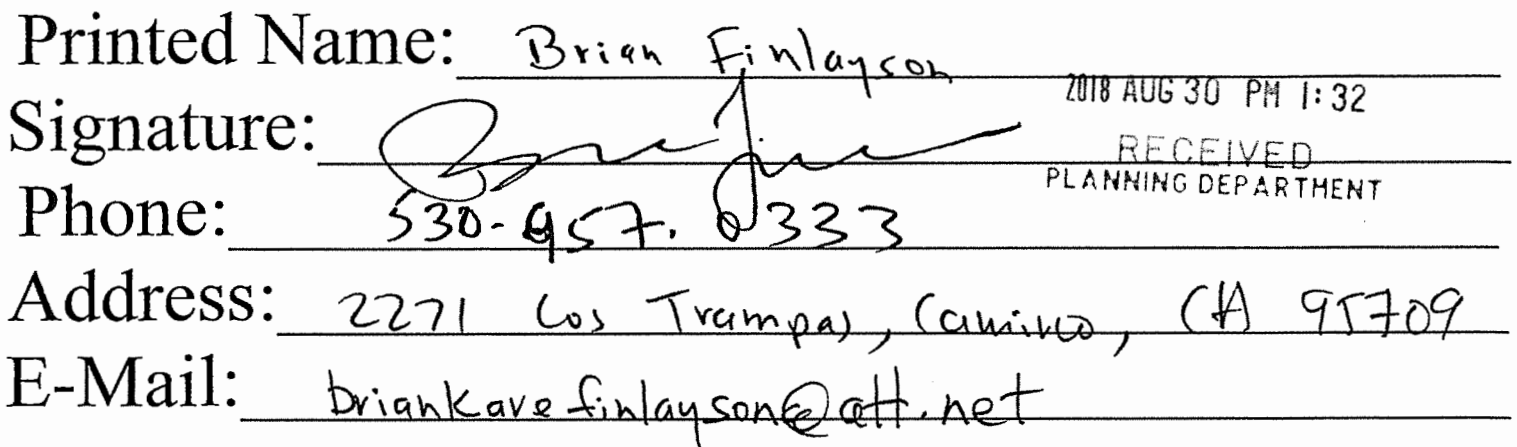 Printed Name: Brian Finlayson
2018 AUG 30 PM 1:32
Signature:
RECEIVED
PLANNING DEPARTMENT
Phone: 530-957.0333
Address: 2271 Los Trampas, Camino, CA 95709
E-Mail: briankarefinlayson@att.net